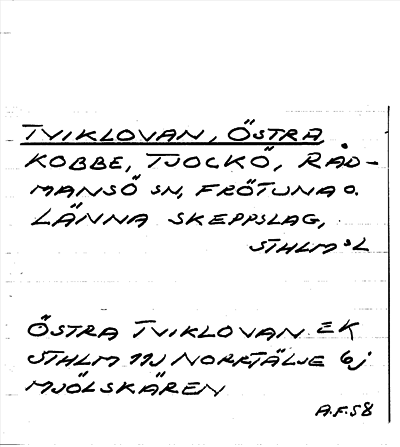 TVIKLOVAN, ÖSTRA
KOBBE, TJOCKÖ, RÅD-
MANSÖ SN, FRÖTUNA O.
LÄNNA SKEPPSLAG,
STHLMS L
ÖSTRA TVIKLOVAN EK
STHLM 11J NORRTÄLJE 6j
MJÖLSKÄREN
A.F.58